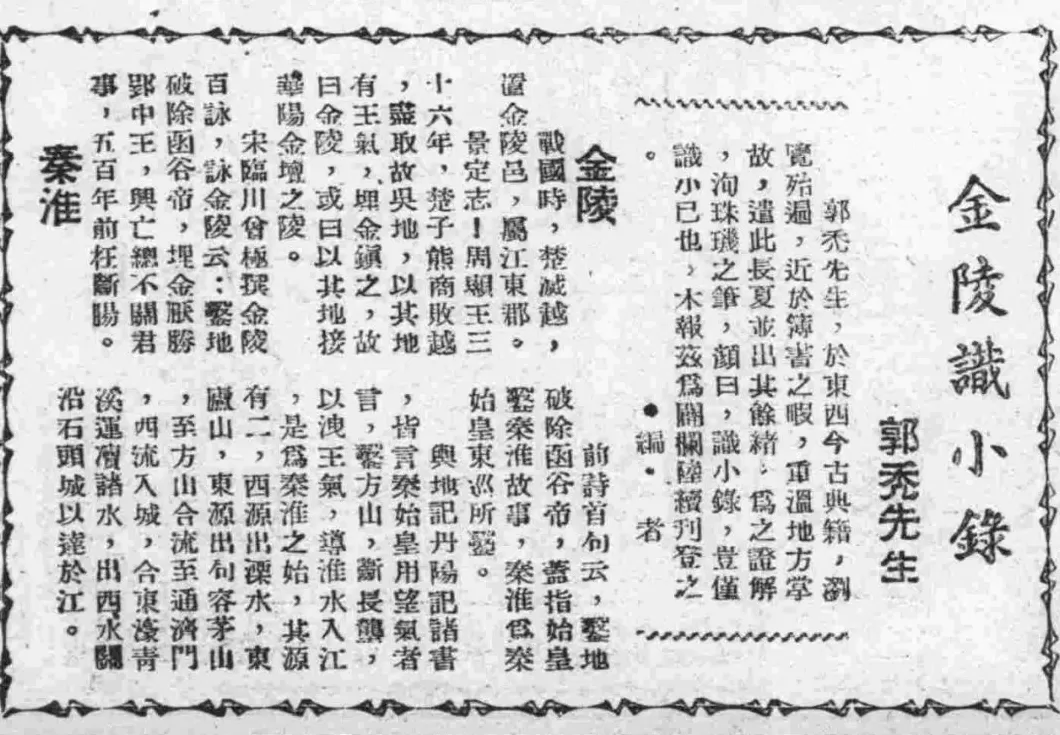 金陵識小錄
郭禿先生
郭禿先生，於東西今古典籍，瀏
覽殆遍，近於簿書之暇，重溫地方掌
故，遣此長夏並出其餘緒，爲之證解
，洵珠璣之筆，顏曰，識小錄，豈僅
識小已也，本報茲爲闢欄陸續刊登之
。
●編·者
金陵
戰國時，楚滅越，
置金陵邑，屬江東郡。
景定志！周顯王三
十六年，楚子熊商敗越
，盡取故吳地，以其地
有王氣，埋金鎭之，故
曰金陵，或曰以其地接
華陽金壇之陵。
宋臨川曾極撰金陵
百詠，詠金陵云：鑿地
破除函谷帝，埋金厭勝
郢中王，興亡總不關君
事，五百年前枉斷腸。
秦淮
前詩首句云，鑿地
破除函谷帝，蓋指始皇
鑿秦淮故事，秦淮爲秦
始皇東巡所鑿。
輿地記丹陽記諸書
，皆言秦始皇用望氣者
言，鑿方山，斷長壟，
以洩王氣，導淮水入江
，是爲秦淮之始，其源
有二，西源出溧水，東
廬山，東源出句容茅山
，至方山合流至通濟門
，西流入城，合東淩青
溪運瀆諸水，出西水關
沿石頭城以達於江。